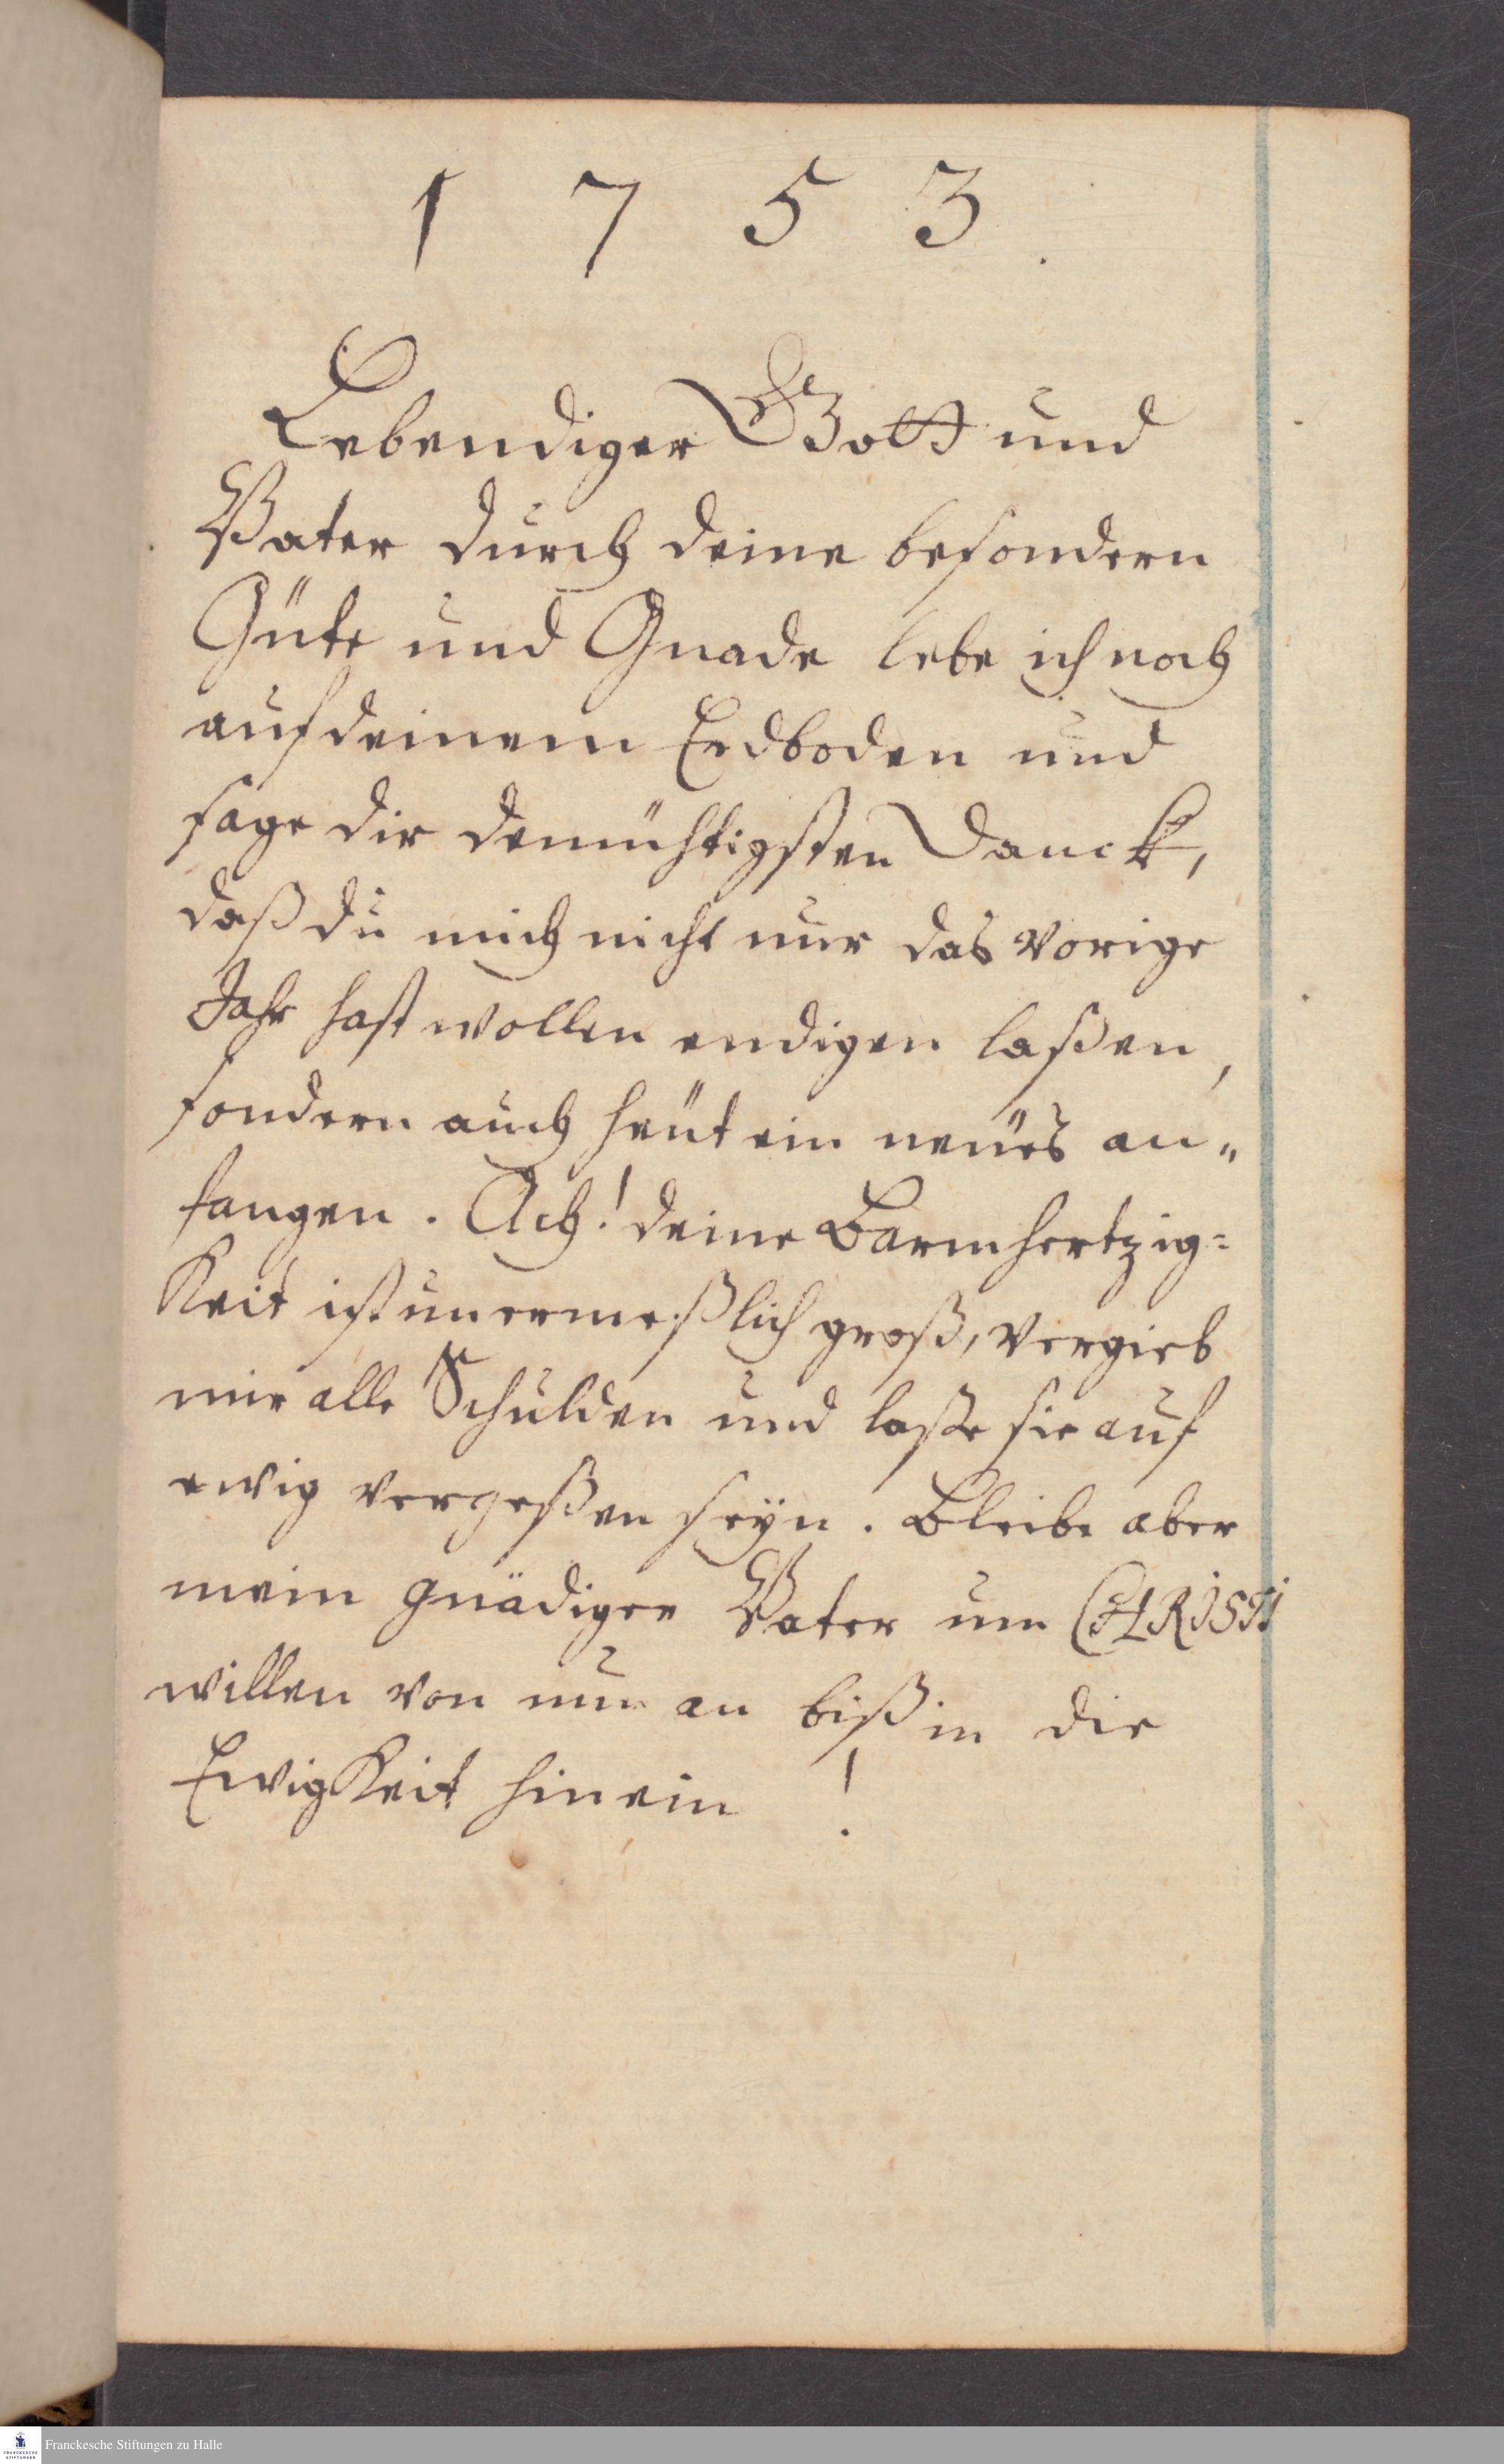 1753.
Lebendiger Gott und
Vater durch deine besondern
Güte und Gnade lebe ich noch
auf deinem Erdboden und
sage dir demühtigsten Danck,
daß du mich nicht nur das vorige
Jahr hast wollen endigen laßen,
sondern auch heüt ein neües an„
fangen. Ach! deine Barmhertzig=
Keit ist unermeßlich groß, vergieb
mir alle Schulden und laße sie auf
ewig vergeßen seÿn. Bleibe aber
mein gnädiger Vater um CHRISTI
willen von nun an biß in die
EwigKeit hinein!
FRANCKESCHE STIFTUNGEN
Franckesche Stiftungen zu Halle